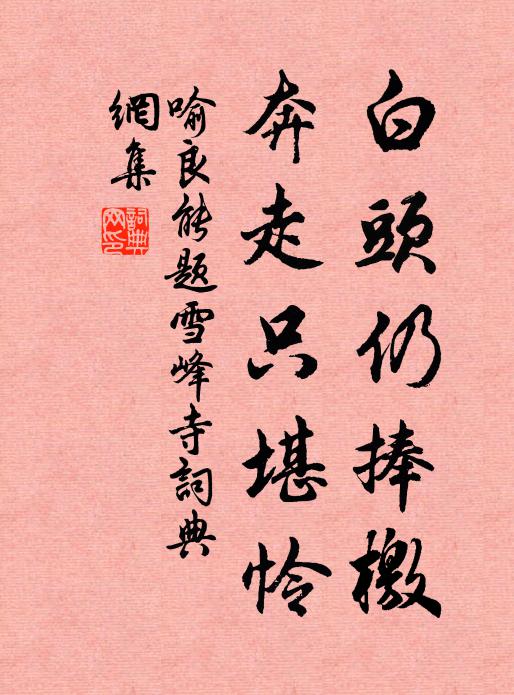 白頭仍捧檄
奔走只堪怜
喻良能題雪峰寺詞典
網集
詞典網印